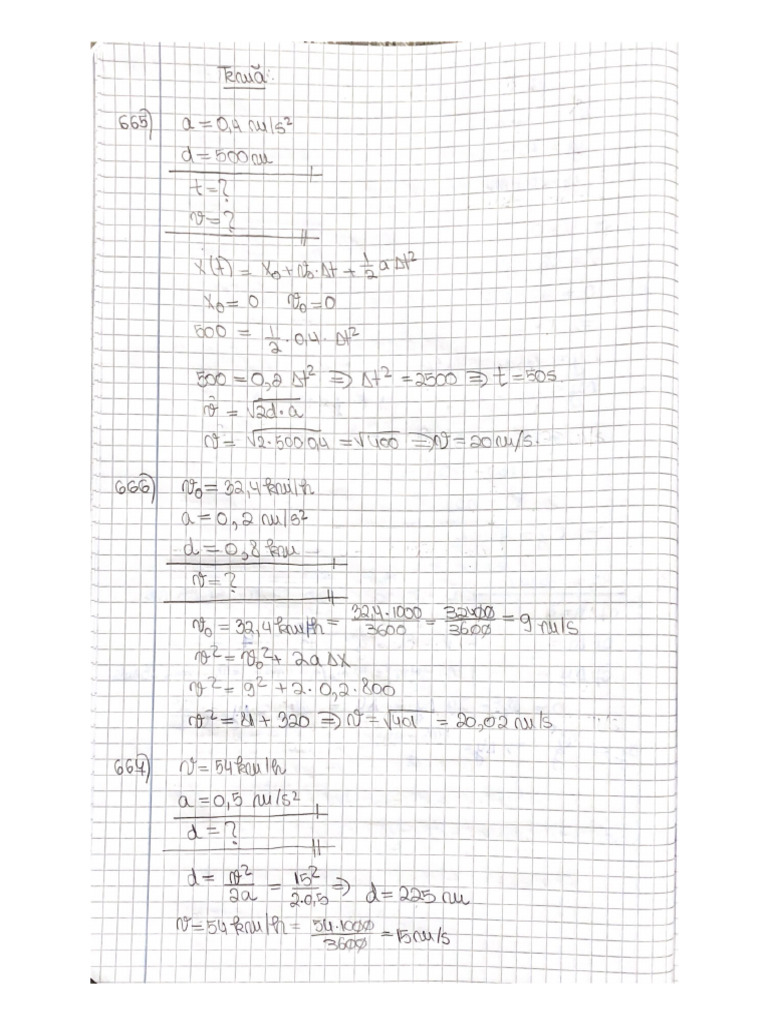 Temă:
665) a = 0,4 m/s²
d = 500 m
t = ?
v = ?
x(t) = x₀ + v₀ · Δt + 1/2 a Δt²
x₀ = 0 v₀ = 0
500 = 1/2 · 0,4 · Δt²
500 = 0,2 Δt² ⇒ Δt² = 2500 ⇒ t = 50s.
v = √2d·a
v = √2·500·0,4 = √400 ⇒ v = 20 m/s.
666) v₀ = 32,4 km/h
a = 0,2 m/s²
d = 0,8 km
v = ?
v₀ = 32,4 km/h = 32,4·1000/3600 = 32400/3600 = 9 m/s
v² = v₀² + 2aΔx
v² = 9² + 2·0,2·800
v² = 81 + 320 ⇒ v = √401 = 20,02 m/s
667) v = 54 km/h
a = 0,5 m/s²
d = ?
d = v²/2a = 15²/2·0,5 ⇒ d = 225 m
v = 54 km/h = 54·1000/3600 = 15 m/s